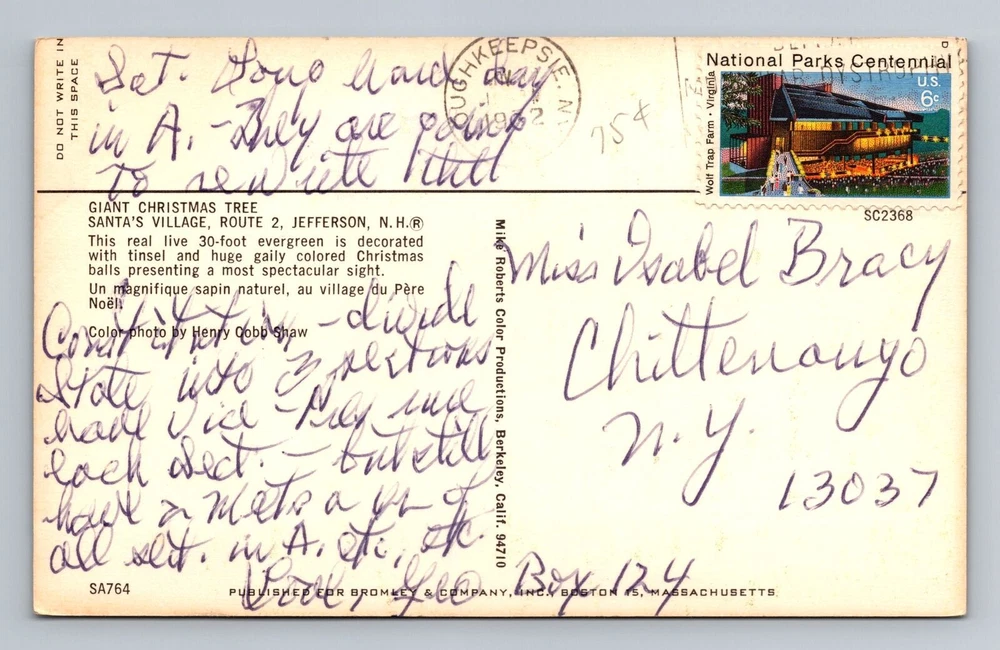 DO NOT WRITE IN
THIS SPACE
Sat. Long hard day
in A. - They are going
to rewrite
GIANT CHRISTMAS TREE
SANTA'S VILLAGE, ROUTE 2, JEFFERSON, N.H.®
This real live 30-foot evergreen is decorated
with tinsel and huge gaily colored Christmas
balls presenting a most spectacular sight.
Un magnifique sapin naturel, au village du Père
Noël.
Color photo by Henry Cobb Shaw
Constitution - divide
State into 3 sections
have Vice - Pres
each sect. - but still
have a yr. of
all sect. in A. etc.
Love, Geo
SA764
PUBLISHED FOR BROMLEY & COMPANY, INC., BOSTON 15, MASSACHUSETTS
Mike Roberts Color Productions, Berkeley, Calif. 94710
POUGHKEEPSIE, N.Y.
75¢
National Parks Centennial
U.S.
6c
Wolf Trap Farm • Virginia
SC2368
Miss Isabel Bracy
Chittenango
N.Y.
13037
Box 124